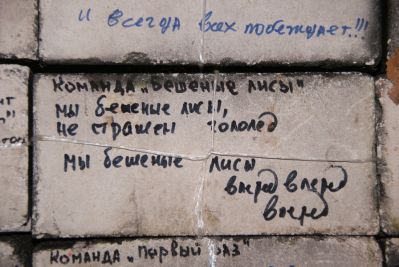 и всегда всех побеждает!!!
Команда „Бешеные лисы"
мы бешеные лисы,
не страшен гололед
мы бешеные лисы
вперед вперед
вперед
Команда „Первый раз"